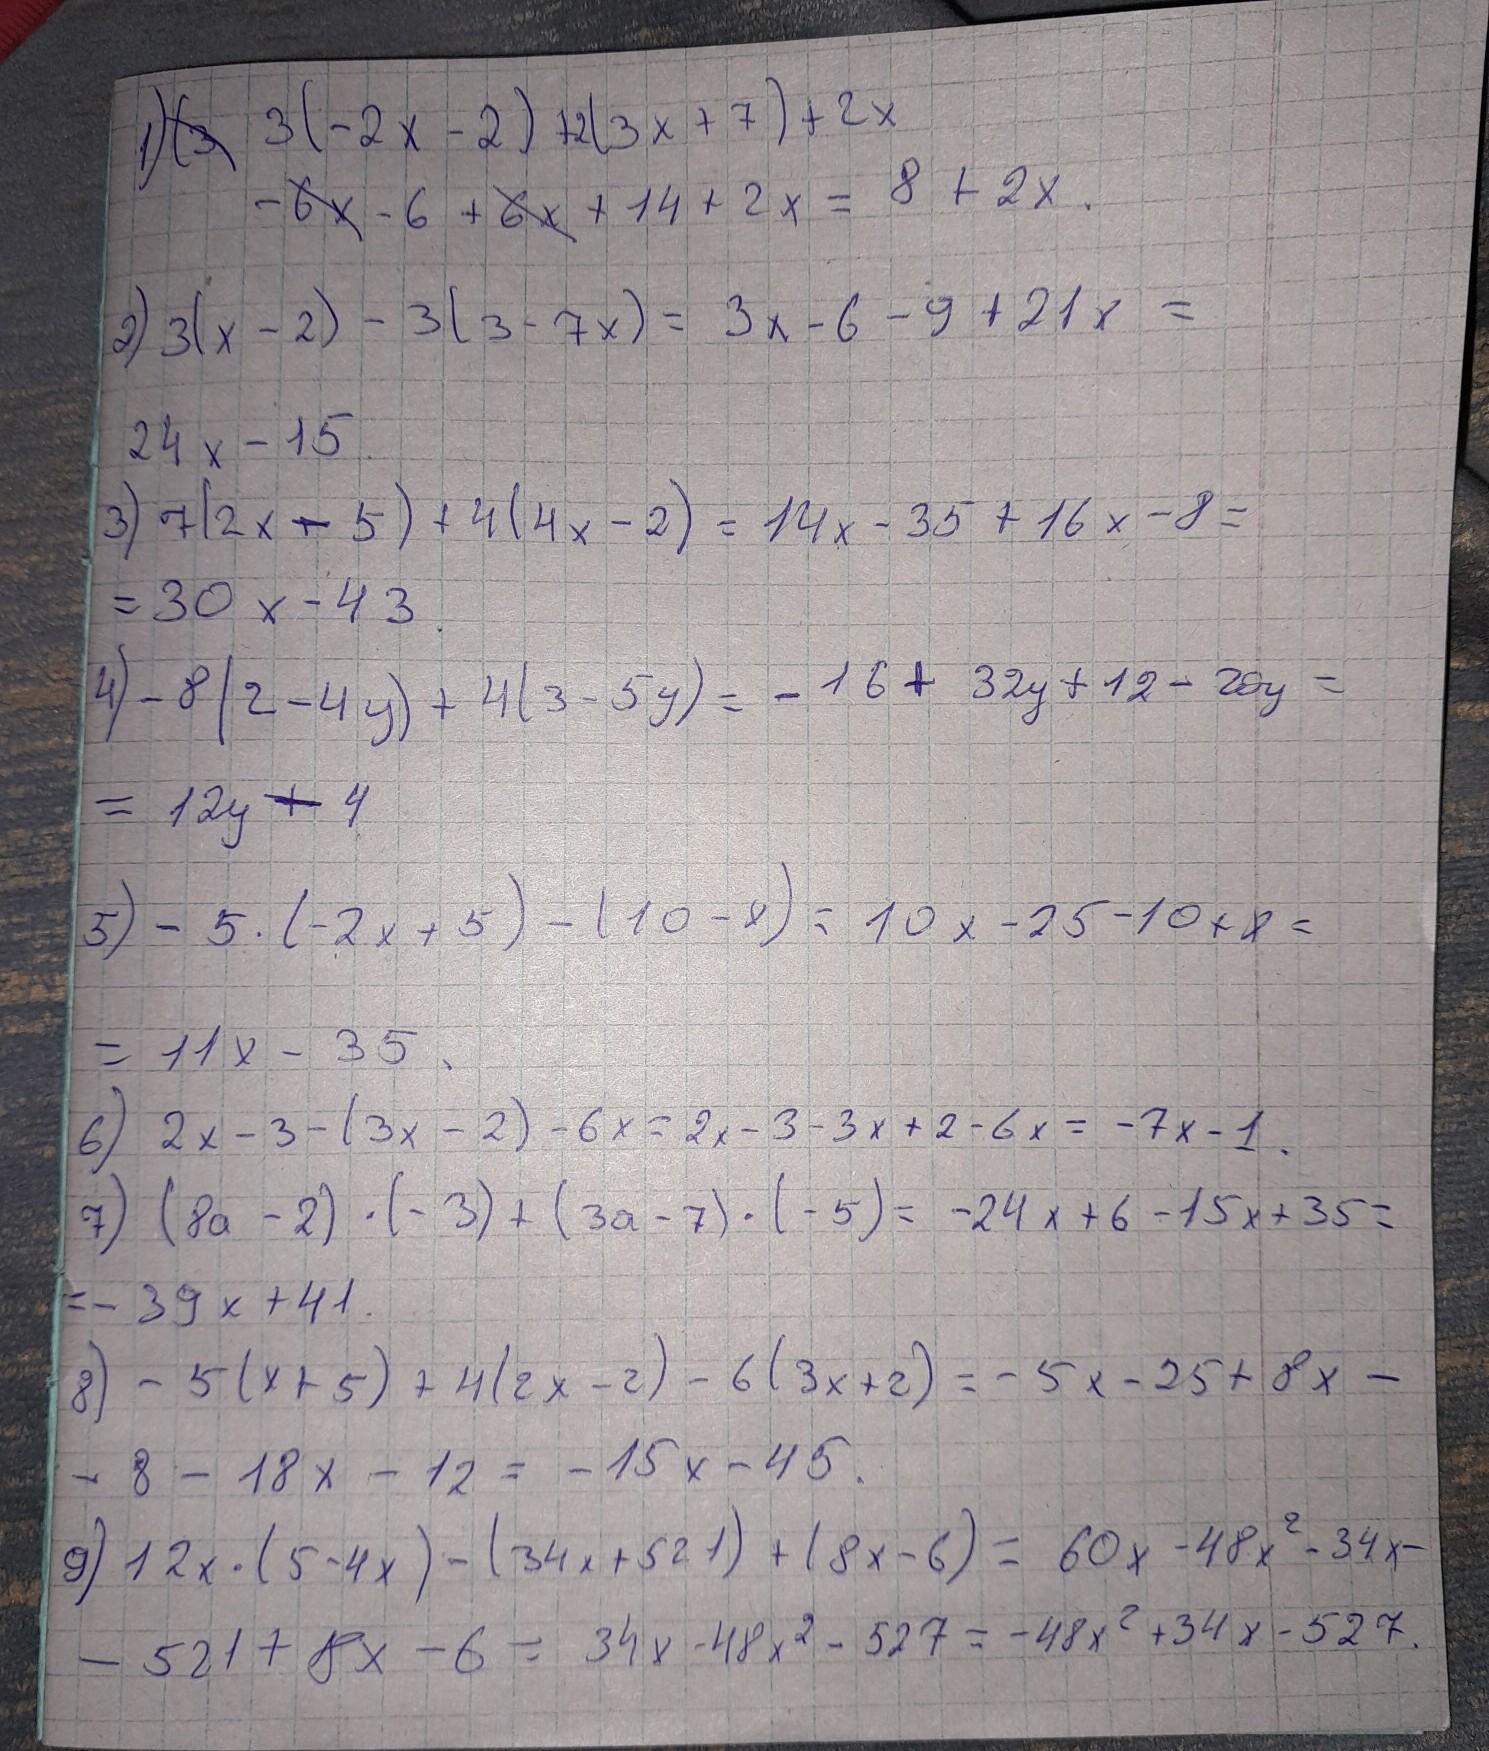 1) 3(-2x-2)+2(3x+7)+2x
-6x-6+6x+14+2x=8+2x.
2) 3(x-2)-3(3-7x)=3x-6-9+21x=
24x-15.
3) 7(2x-5)+4(4x-2)=14x-35+16x-8=
=30x-43.
4) -8(2-4y)+4(3-5y)=-16+32y+12-20y=
=12y+4
5) -5·(-2x+5)-(10-x)=10x-25-10+x=
=11x-35.
6) 2x-3-(3x-2)-6x=2x-3-3x+2-6x=-7x-1.
7) (8a-2)·(-3)+(3a-7)·(-5)=-24x+6-15x+35=
=-39x+41.
8) -5(x+5)+4(2x-2)-6(3x+2)=-5x-25+8x-
-8-18x-12=-15x-45.
9) 12x·(5-4x)-(34x+521)+(8x-6)=60x-48x²-34x-
-521+8x-6=34x-48x²-527=-48x²+34x-527.